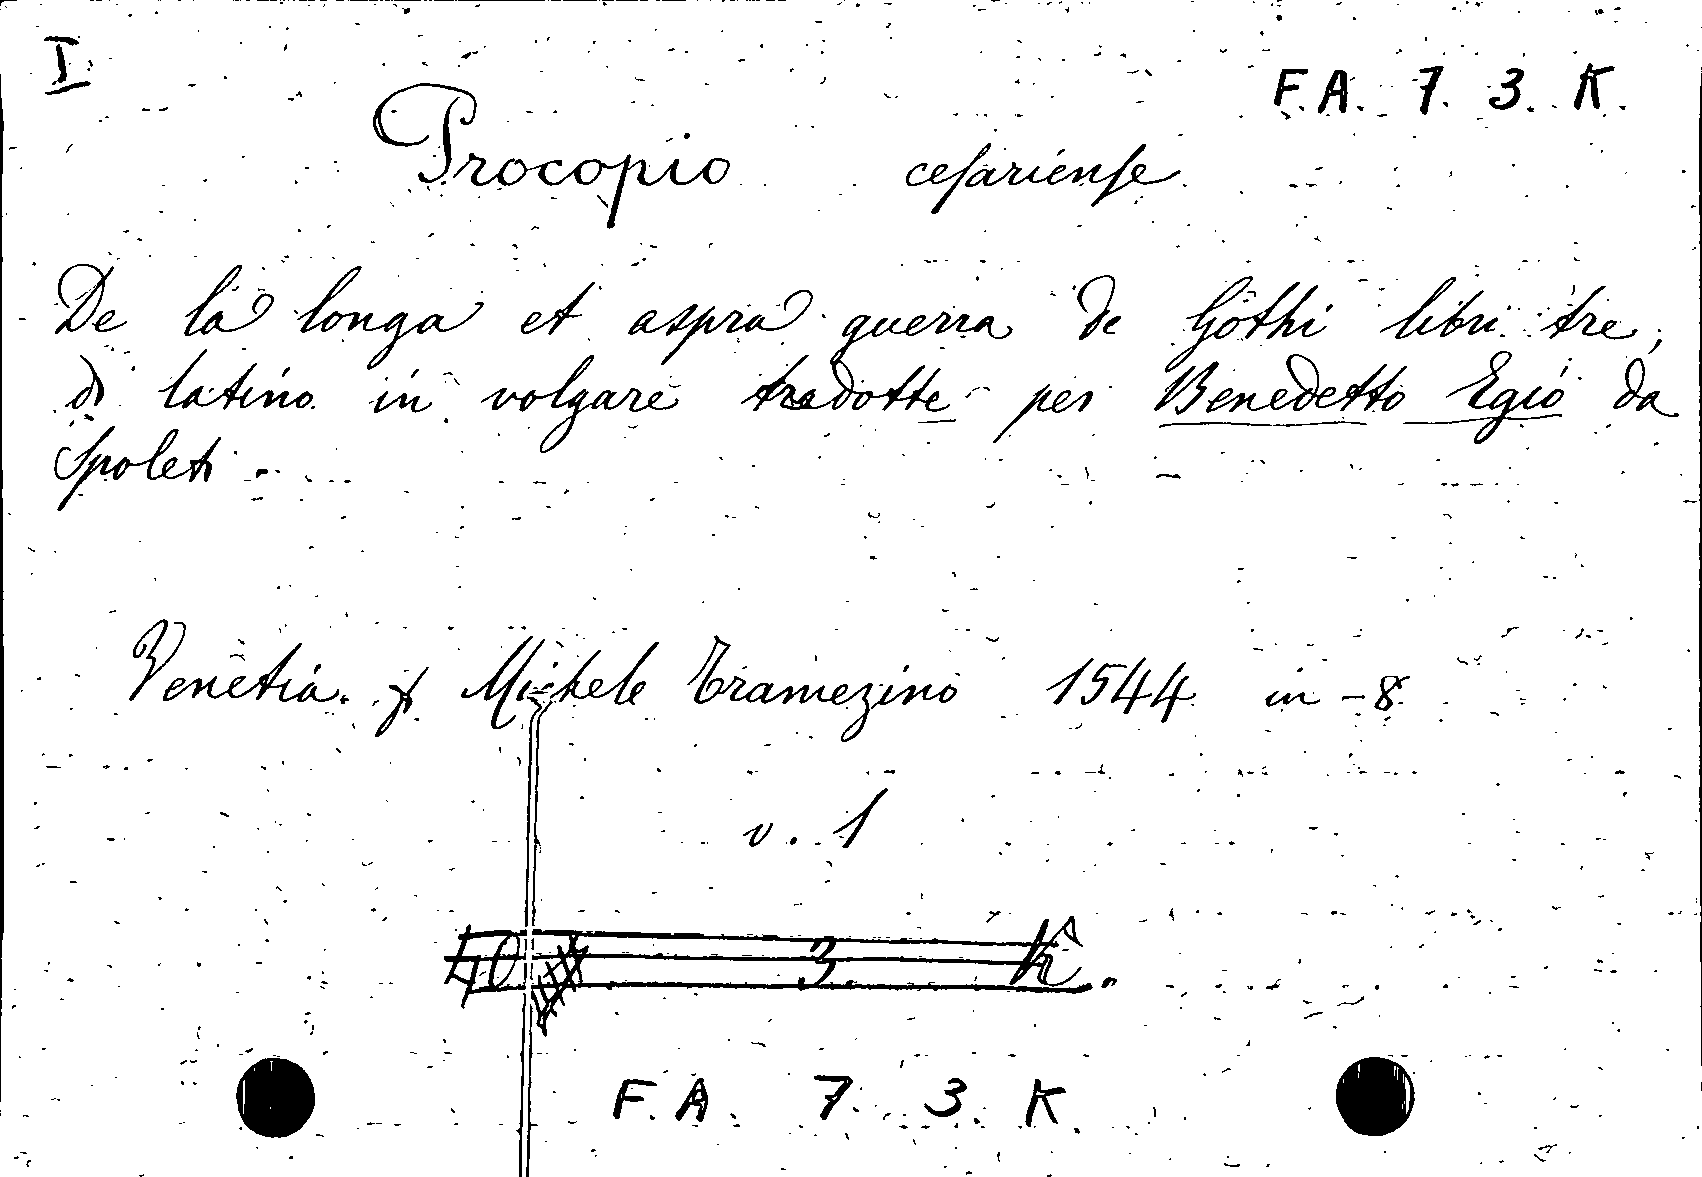 I
F. A. 7. 3. K.
Procopio cesariense
De la longa et aspra guerra de Gothi libri tre,
di latino in volgare tradotte per Benedetto Egio da
Spoleti.
Venetia. Michele Tramezino 1544 in-8
v. 1
40 3. K.
F. A. 7. 3. K.